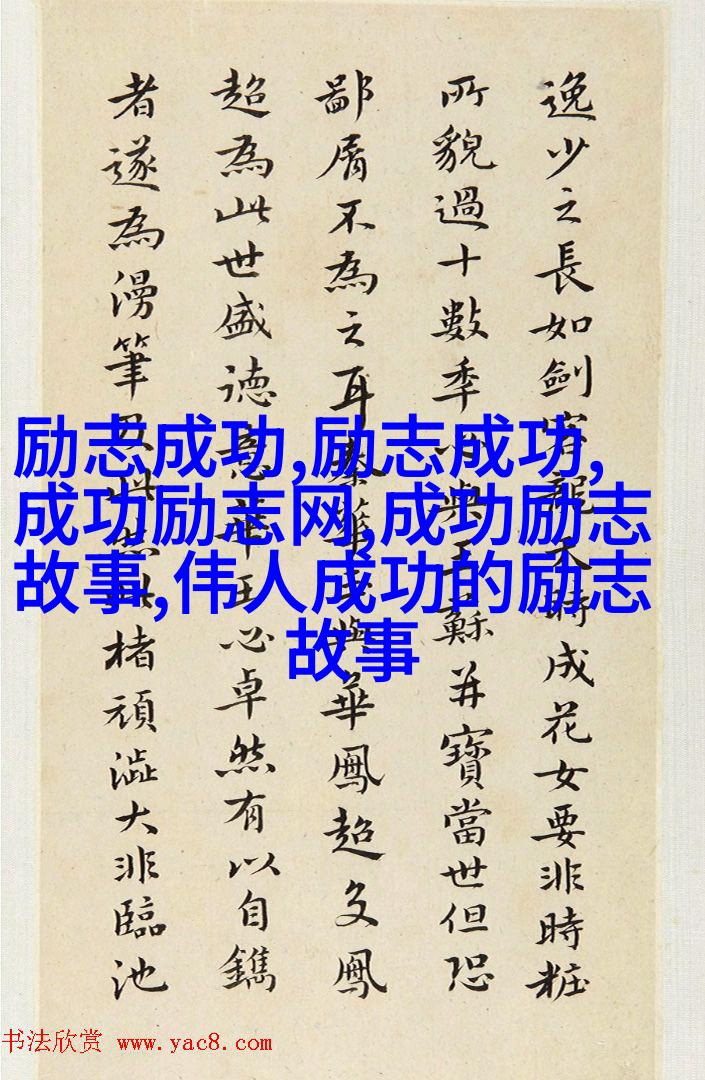 逸少之長如劍客龍天時成花女要非時粧
所貌過十數季與王蘇并寶當世但恐
鄙屑不為之耳華鳳超文鳳
超為此世盛德心卓然有以自鐫
者遂為漫筆楮頑澁大非臨池
励志成功,励志成功,
成功励志网,成功励志
故事,伟人成功的励志
故事
书法欣赏 www.yac8.com